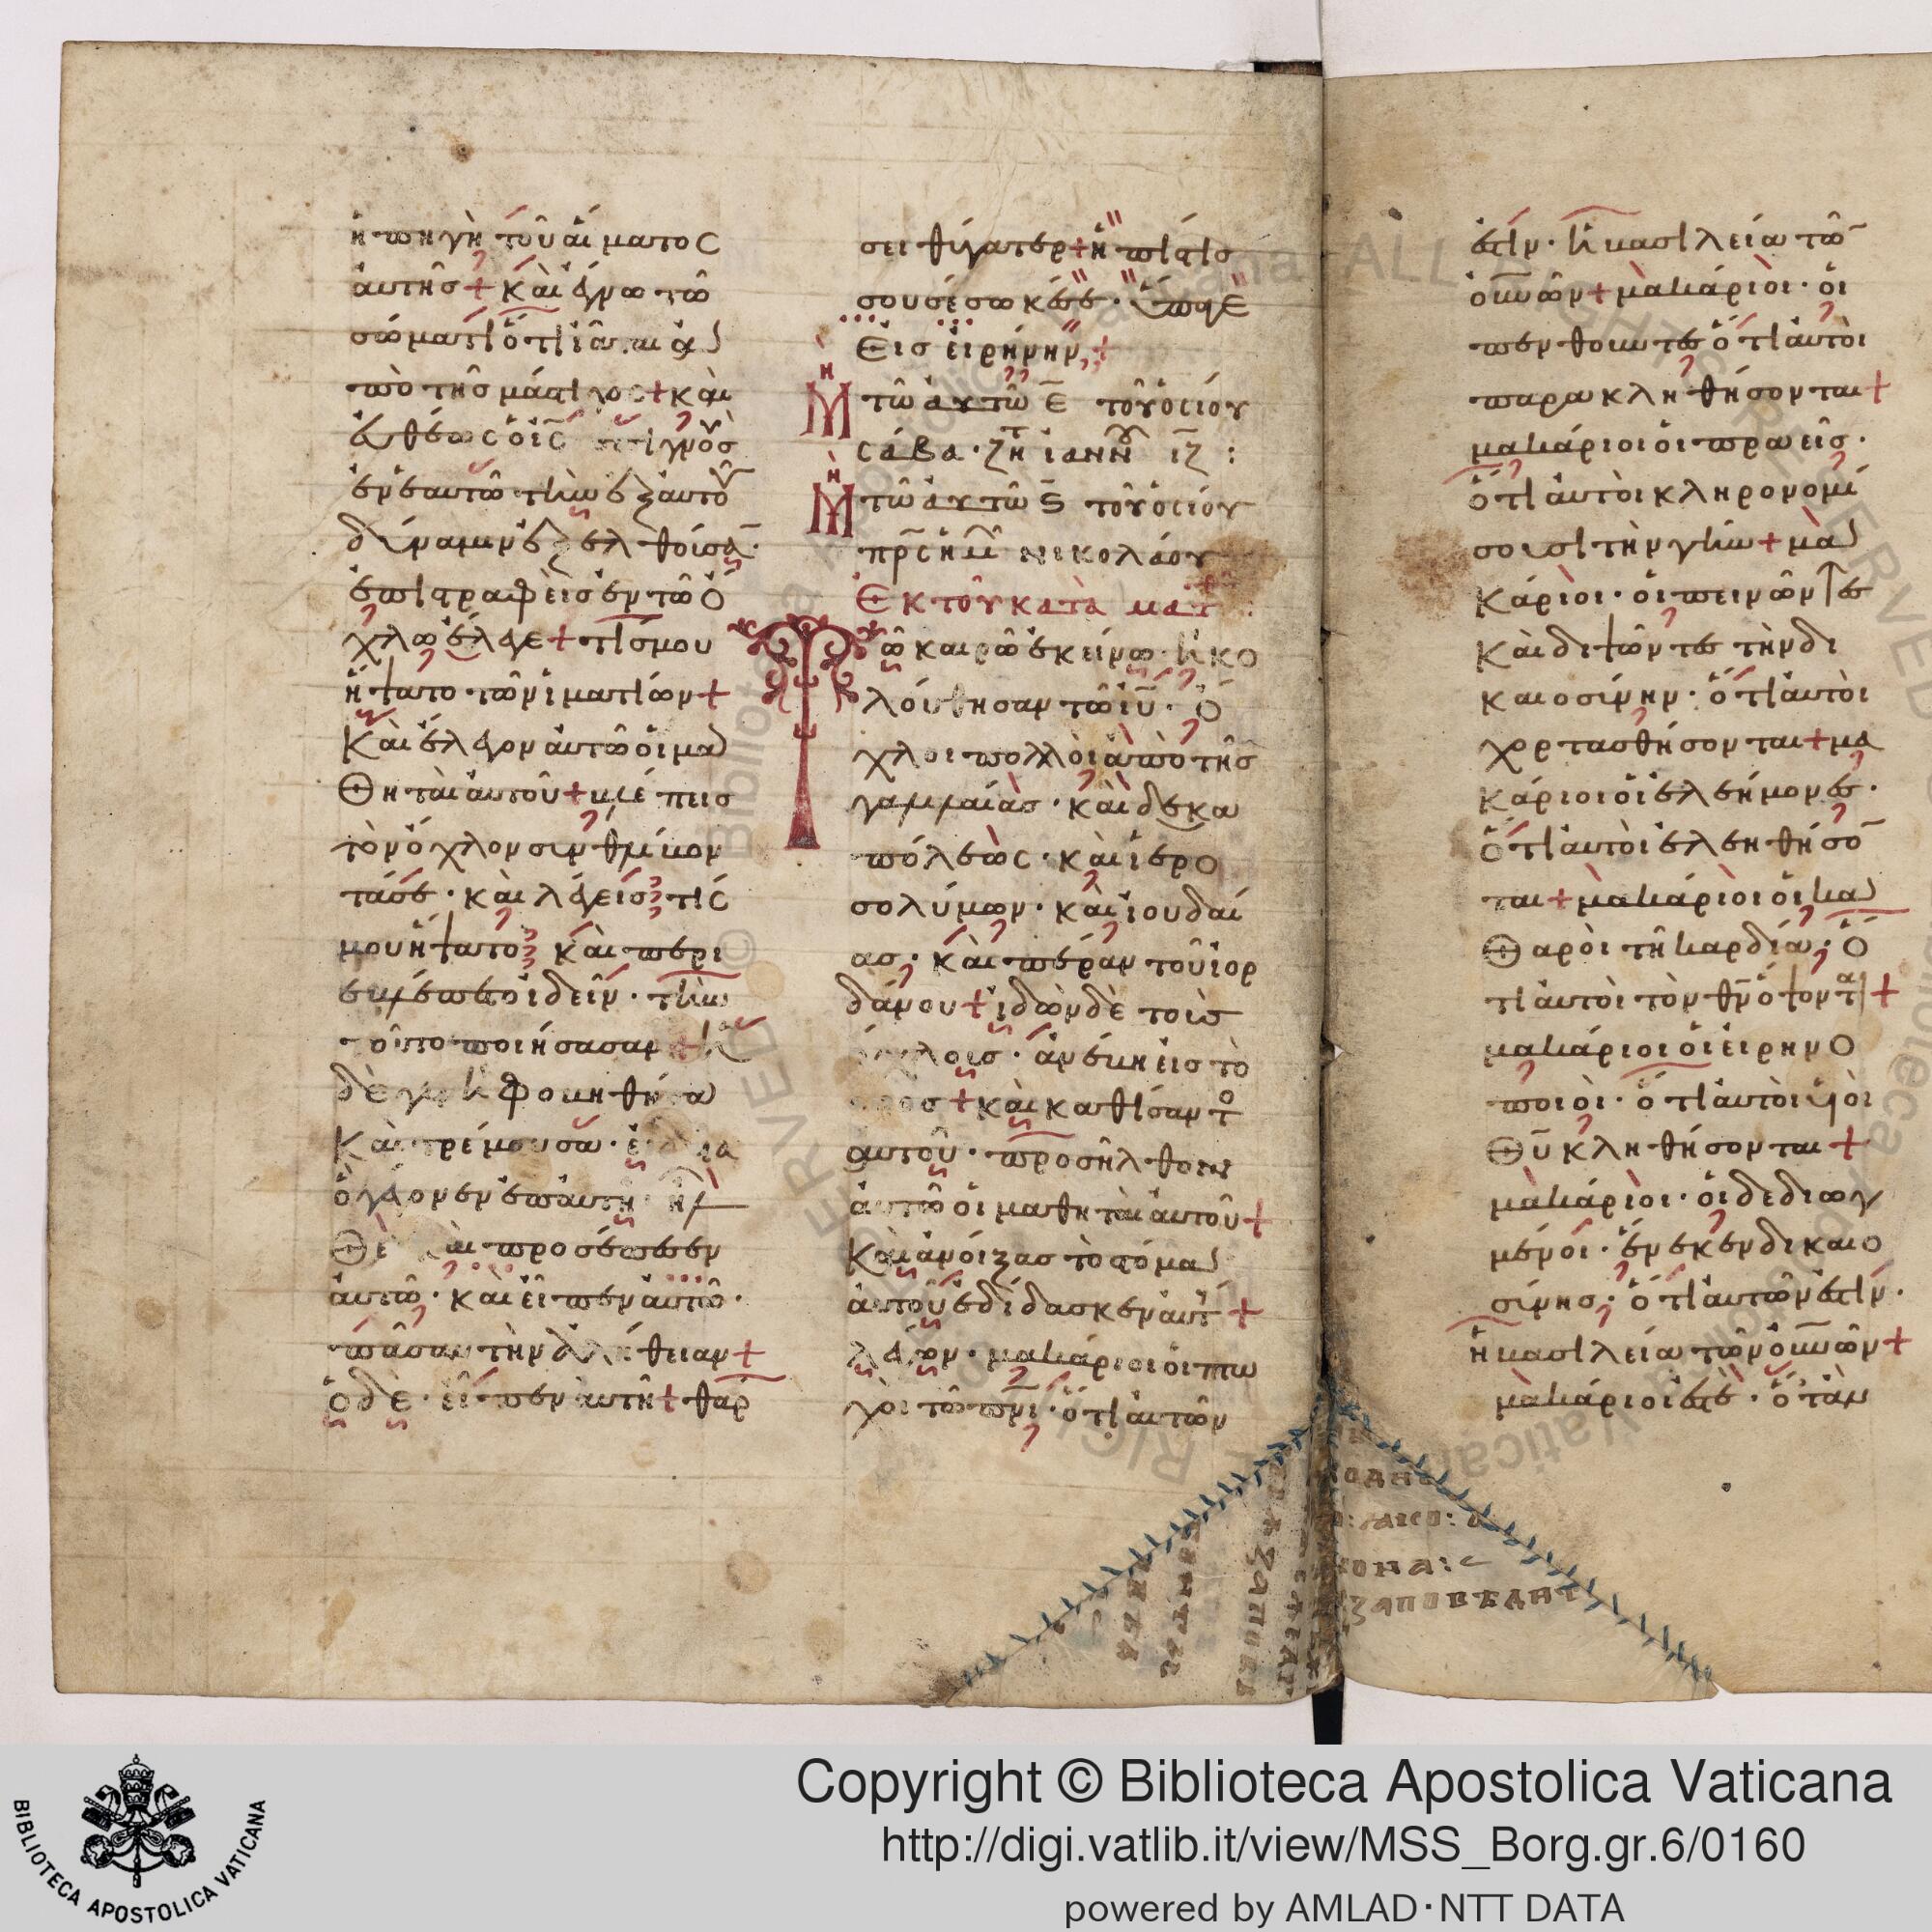 ἡ πηγὴ τοῦ αἵματος
αὐτῆς + καὶ ἔγνω τῶ
σώματι ὅτι ἴαται ἀ
πὸ τῆς μάστιγος + καὶ
εὐθέως ὁ ἰς ἐπιγνοὺς
ἐν ἑαυτῶ τὴν ἐξ αὐτοῦ
δύναμιν ἐξελθοῦσα̅·
ἐπιστραφεὶς ἐν τῶ ὄ
χλω ἔλεγε + τίς μου
ἥψατο τῶν ἱματίων +
Καὶ ἔλεγον αὐτῶ οἱ μα
θηταὶ αὐτοῦ + βλέπεις
τὸν ὄχλον συνθλίβον
τά σε · καὶ λέγεις τίς
μου ἥψατο καὶ περι
εβλέπετο ἰδεῖν · τὴν
τοῦτο ποιήσασαν + ἡ
δὲ γυνὴ φοβηθεῖσα
Καὶ τρέμουσα ·
ὃ γέγονεν ἐπ' αὐτῆ ἦλ
θε καὶ προσέπεσεν
αὐτῶ · καὶ εἶπεν αὐτῶ ·
πᾶσαν τὴν ἀλήθειαν +
ὁ δὲ · εἶπεν αὐτῆ + θάρ
σει θύγατερ + ἡ πίστις
σου σέσωκέ σε · ὕπαγε
Εἰς εἰρήνην +
Μη τῶ αυτῶ ε̅ τοῦ ὁσίου
σάβα · ζητ ἰαννου ιζ :
Μη τῶ αυτῶ ς̅ τοῦ ὁσίου
πρ̅ς ημ νικολάου
Ἐκ τοῦ κατὰ ματ :
Τῶ καιρῶ ἐκείνω · ἠκο
λούθησαν τῶ ἰυ̅ · ὄ
χλοι πολλοὶ ἀπὸ τῆς
γαλιλαίας · καὶ δεκα
πόλεως · καὶ ἱερο
σολύμων · καὶ ἰουδαί
ας · καὶ πέραν τοῦ ἰορ
δάνου + ἰδὼν δὲ τοὺς
ὄχλους · ἀνέβη εἰς τὸ
ὄρος + καὶ καθίσαντο
αυτοῦ · προσῆλθον
αὐτῶ οἱ μαθηταὶ αὐτοῦ +
Καὶ ἀνοίξας τὸ στόμα
αὐτοῦ ἐδίδασκεν αὐτ +
λέγων · μακάριοι οἱ πτω
χοὶ τῶ πνι̅ · ὅτι αὐτῶν
ἐστιν · ἡ βασιλεία τῶ̅
οὐνῶν + μακάριοι · οἱ
πενθοῦντες ὅτι αὐτοὶ
παρακληθήσονται +
μακάριοι οἱ πραεῖς ·
ὅτι αὐτοὶ κληρονομί
σουσι τὴν γῆν + μα
κάριοι · οἱ πεινῶντες
Καὶ διψῶντες τὴν δι
καιοσύνην · ὅτι αὐτοὶ
χορτασθήσονται + μα
κάριοι οἱ ἐλεήμονες ·
ὅτι αὐτοὶ ἐλεηθήσο̅
ται + μακάριοι οἱ κα
θαροὶ τῆ καρδία · ὅ
τι αὐτοὶ τὸν θν̅ ὄψοντ +
μακάριοι οἱ εἰρηνο
ποιοὶ · ὅτι αὐτοὶ υἱοὶ
Θυ̅ κληθήσονται +
μακάριοι · οἱ δεδιωγ
μένοι · ἕνεκεν δικαιο
σύνης · ὅτι αὐτῶν ἐστιν ·
ἡ βασιλεία τῶν οὐνῶν +
μακάριοι ἐστὲ · ὅταν
Copyright © Biblioteca Apostolica Vaticana
http://digi.vatlib.it/view/MSS_Borg.gr.6/0160
powered by AMLAD·NTT DATA
BIBLIOTECA APOSTOLICA VATICANA